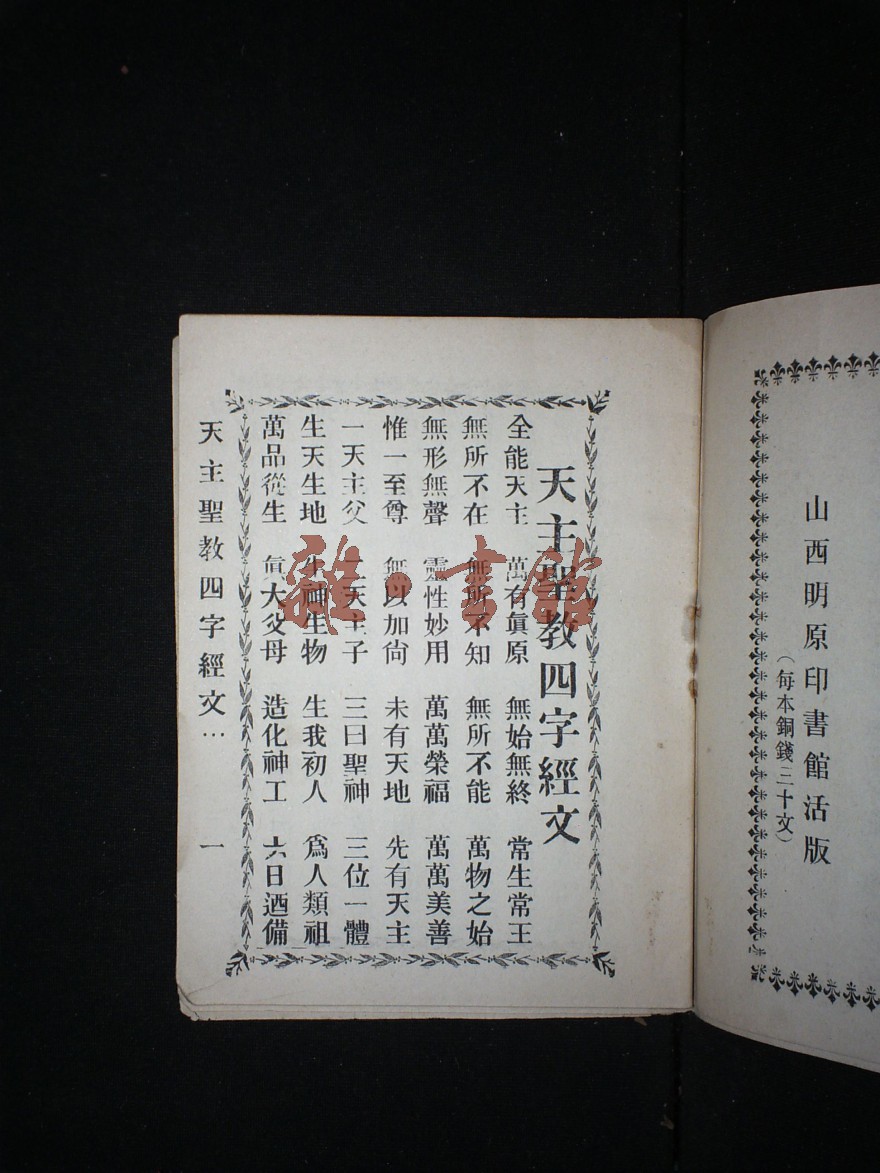 山西明原印書館活版
(每本銅錢三十文)
天主聖教四字經文
全能天主 萬有眞原 無始無終 常生常王
無所不在 無所不知 無所不能 萬物之始
無形無聲 靈性妙用 萬萬榮福 萬萬美善
惟一至尊 無以加尙 未有天地 先有天主
一天主父 二天主子 三曰聖神 三位一體
生天生地 生神生物 生我初人 爲人類祖
萬品從生 眞大父母 造化神工 六日迺備
天主聖教四字經文… 一
雜·書館